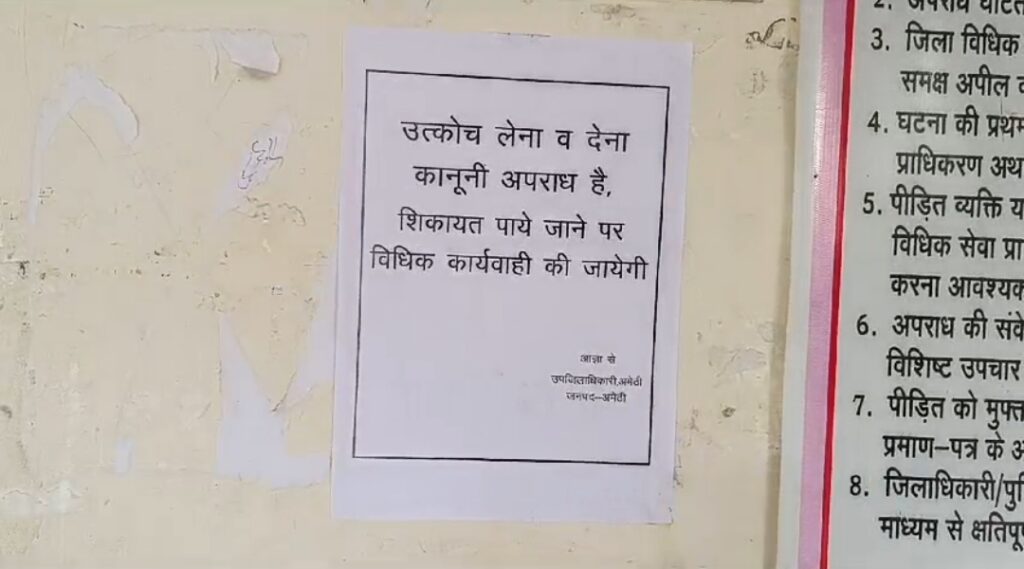 उत्कोच लेना व देना
कानूनी अपराध है,
शिकायत पाये जाने पर
विधिक कार्यवाही की जायेगी
आज्ञा से
उपजिलाधिकारी,अमेठी
जनपद–अमेठी
2. अपराध
3. जिला विधिक
समक्ष अपील
4. घटना की
प्राधिकरण
5. पीड़ित व्यक्ति
विधिक सेवा
करना
6. अपराध की
विशिष्ट उपचार
7. पीड़ित को
प्रमाण–पत्र के
8. जिलाधिकारी/
माध्यम से